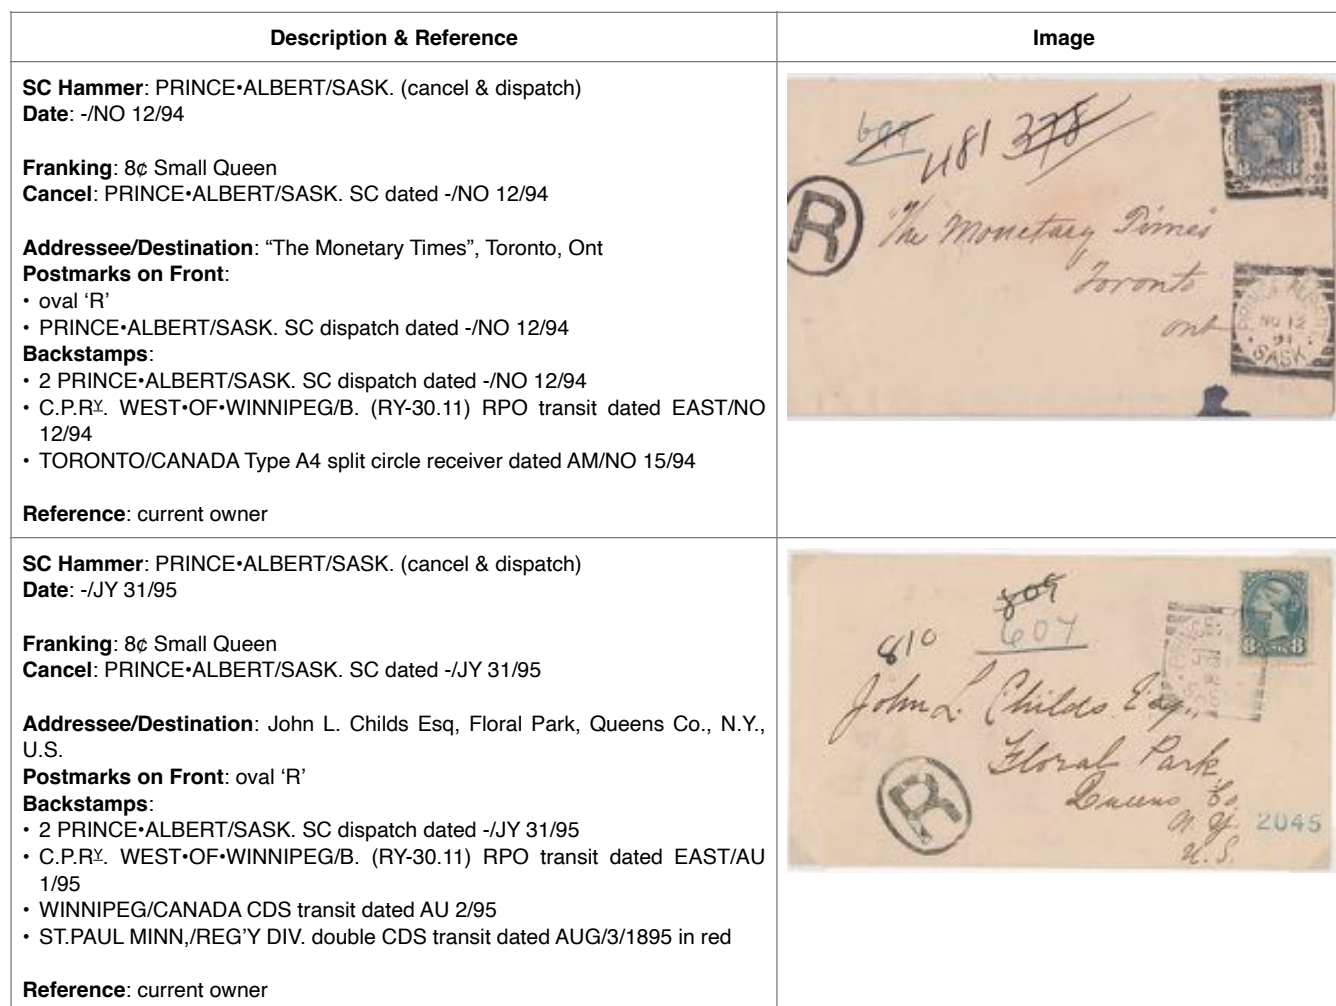 Description & Reference
Image
SC Hammer: PRINCE•ALBERT/SASK. (cancel & dispatch)
Date: -/NO 12/94
Franking: 8¢ Small Queen
Cancel: PRINCE•ALBERT/SASK. SC dated -/NO 12/94
Addressee/Destination: “The Monetary Times”, Toronto, Ont
Postmarks on Front:
• oval ‘R’
• PRINCE•ALBERT/SASK. SC dispatch dated -/NO 12/94
Backstamps:
• 2 PRINCE•ALBERT/SASK. SC dispatch dated -/NO 12/94
• C.P.Rʏ. WEST•OF•WINNIPEG/B. (RY-30.11) RPO transit dated EAST/NO
12/94
• TORONTO/CANADA Type A4 split circle receiver dated AM/NO 15/94
Reference: current owner
481 378
R
The Monetary Times
Toronto
Ont
PRINCE ALBERT
NO 12
94
SASK.
8 8
SC Hammer: PRINCE•ALBERT/SASK. (cancel & dispatch)
Date: -/JY 31/95
Franking: 8¢ Small Queen
Cancel: PRINCE•ALBERT/SASK. SC dated -/JY 31/95
Addressee/Destination: John L. Childs Esq, Floral Park, Queens Co., N.Y.,
U.S.
Postmarks on Front: oval ‘R’
Backstamps:
• 2 PRINCE•ALBERT/SASK. SC dispatch dated -/JY 31/95
• C.P.Rʏ. WEST•OF•WINNIPEG/B. (RY-30.11) RPO transit dated EAST/AU
1/95
• WINNIPEG/CANADA CDS transit dated AU 2/95
• ST.PAUL MINN,/REG’Y DIV. double CDS transit dated AUG/3/1895 in red
Reference: current owner
607
810
8 8
John L. Childs Esq.,
Floral Park
Queens Co.
N.Y. 2045
U.S.
R